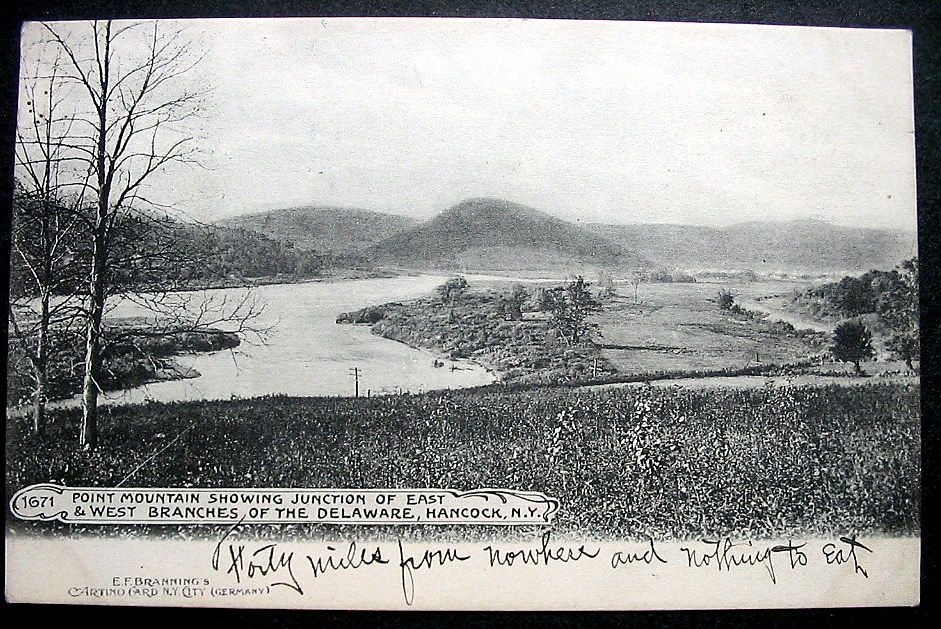 1671 POINT MOUNTAIN SHOWING JUNCTION OF EAST
& WEST BRANCHES, OF THE DELAWARE, HANCOCK, N.Y.
Forty miles from nowhere and nothing to Eat
E.F. BRANNING'S
CARTINO CARD N.Y. CITY (GERMANY)